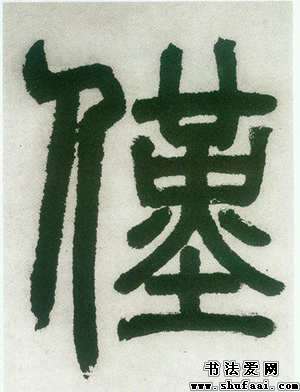 僅
书法爱网
www.shufaai.com